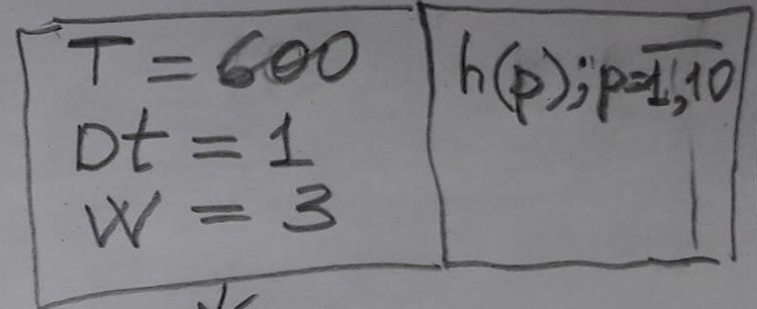 T = 600
Dt = 1
W = 3
h(p); p=1,10